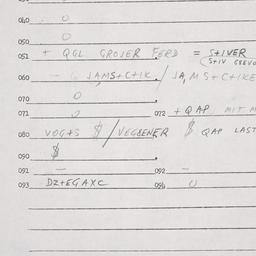 040 0
050 0
051 + QGL GROJER FERD = S+IVER
(S+IV
060 - G JAMS+C+IK / JA, MS+C+IKE
070 0
071 0 072 + QAP MIT
080 VOG+S $ / VEGBENER $ QAP LAST
090 $
091 — 092 —
093 DZ+EGAXC 096 0